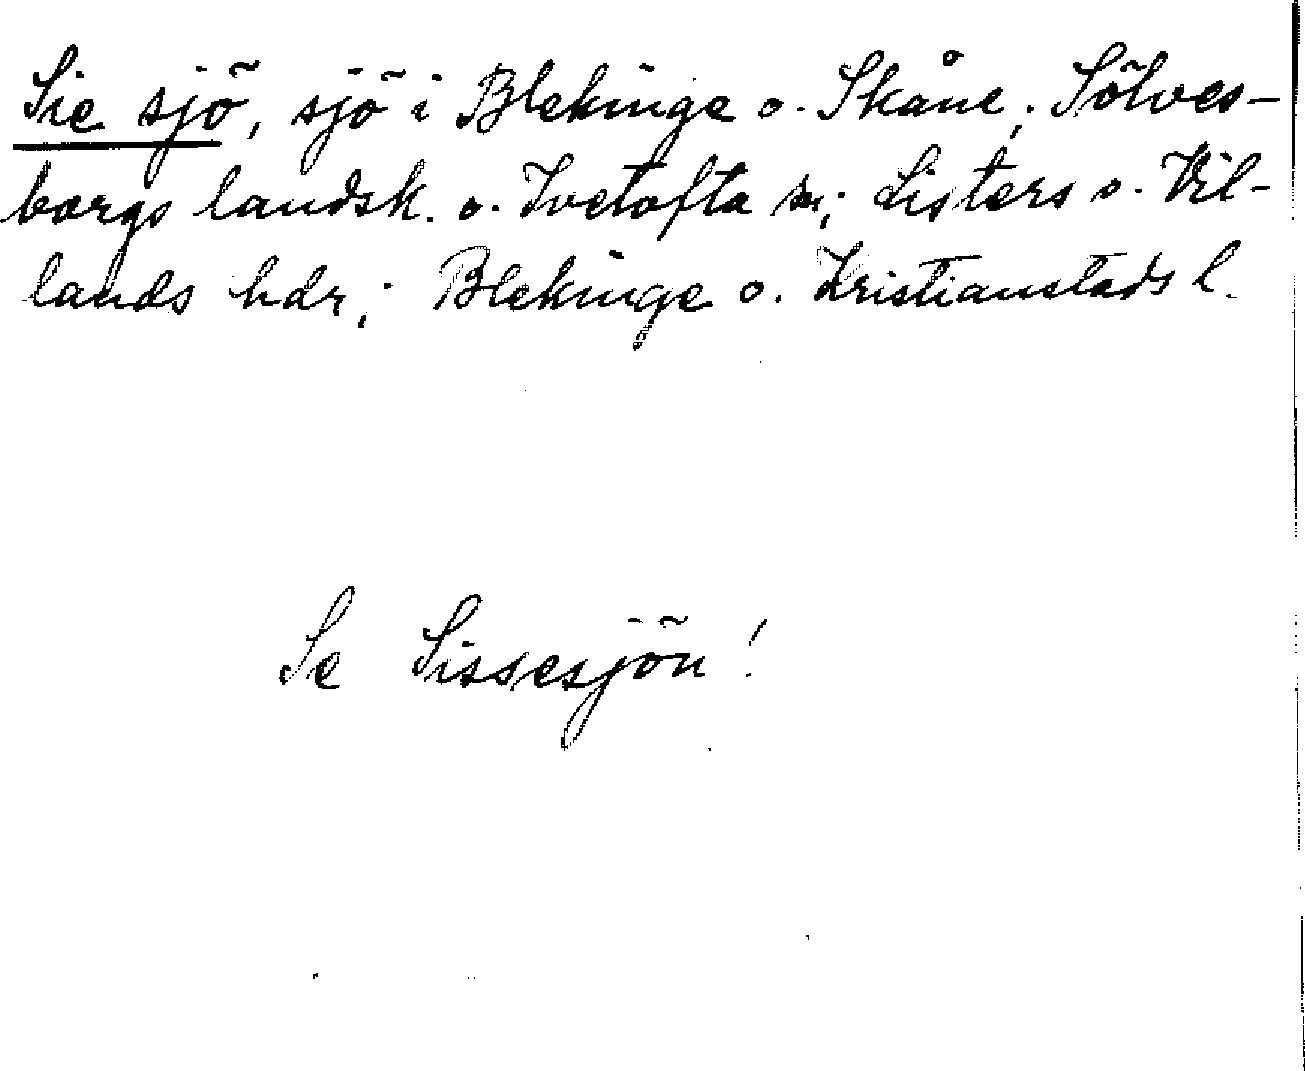 Sie sjö, sjö i Blekinge o. Skåne; Sölves-
borgs landsk. o. Ivetofta sn; Listers o. Vil-
lands hdr; Blekinge o. Kristianstads l.
Se Sissesjön!